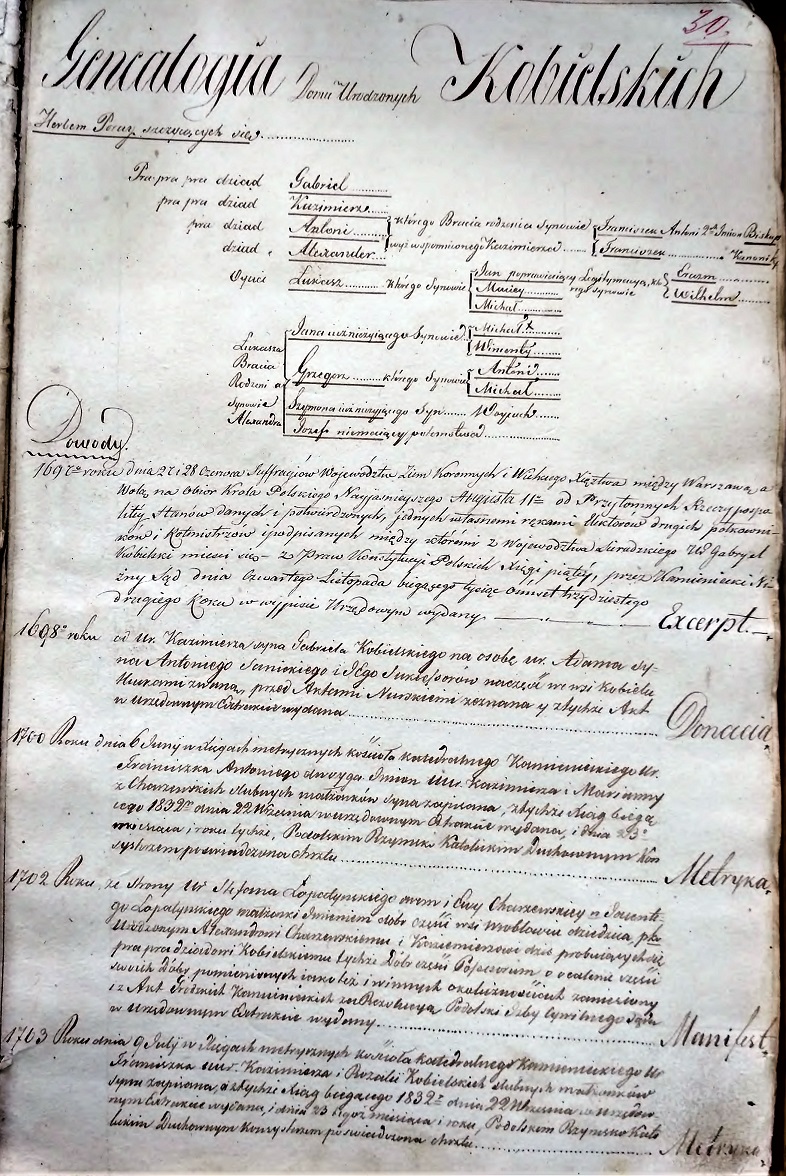 30.
Genealogia Domu Urodzonych Kobielskich
Herbem Poray szczycących się
Pra pra pra dziad Gabriel
pra pra dziad Kazimierz
pra dziad Antoni którego Bracia rodzenia synowie Franciszek Antoni 2ch Imion Biskup
dziad Alexander wyż wspomnionego Kazimierza Franciszek Kanonik
Oyciec Łukasz którego Synowie Jan poprawiaiący Legitymacyą, którego synowie Erazm
Maciey Wilhelm
Michał
Łukasza Bracia Rodzeni a synowie Alexandra
Jana uczniżyiącego Synowie Michał
Wincenty
Grzegorz którego Synowie Antoni
Michał
Szymona uczniżyiącego Syn Woyciech
Józef niemaiący potomstwa
Dowody.
1697 roku dnia 27 i 28 Czerwca Suffragiów Województw Ziem Koronnych i Wielkiego Xięztwa między Warszawą a
Wolą na Obiór Króla Polskiego Nayjaśnieyszego Augusta IIgo od Przytomnych Rzeczypospo
litey Stanów danych i potwierdzonych, jednych własnemi rękami Elektorów drugich półkowni
ków i Rotmistrzów i podpisanych między któremi z Województwa Sieradzkiego Ur Gabryel
Kobielski mieści się z Praw Konstytucyi Polskich Xięgi piątéy, przez Kamieniecki Ni
zny Sąd dnia czwartego Listopada bieżącego tysiąc ośmset trzydziestego
drugiego Roku w wypisie Urzędowym wydany Excerpt.
1698 roku od Ur. Kazimierza syna Gabriela Kobielskiego na osobę ur. Adama Sy
na Antoniego Sanickiego i Jego Sukcessorów na część we wsi Kobiela
zwaną, przed Aktami zeznana y z tychże Akt
w urzędownym Extrakcie wydana Donacia.
1700 Roku dnia 6 Junij w Xięgach metrycznych kościoła katedralnego Kamienieckiego Ur.
Franciszka Antoniego dwoyga Imion Uur. Kazimierza i Maryanny
z Charzewskich slubnych małżonków syna zapisana, z tychże Xiąg bieżą
cego 1832 dnia 22 Września w urzędownym Extrakcie wydana, i dnia 23
miesiąca i roku tychże, Podolskim Rzymsko Katolickim Duchownym Kon
systorzem poświadczona chrztu Metryka.
1702 Roku, ze strony Ur Stefana Łopatynskiego oycem i Ewy Charzewskiey a Jasente
go Łopatynskiego małżonki Imieniem osoby części wsi Wroblowce dziedzica pko
Urodzonym Alexandrowi Charzewskiemu i Kazimierzowi dziś probuiących się
pra pra dziadowi Kobielskiemu tychże Dóbr części Possessorom o ocalenie części
swoich Dóbr pomienionych iako też i w innych okolicznościach zaniesiony
i z Akt Grodzkich Kamienieckich za Rezolucyą Podolski Izby Cywilnego Sądu
w urzędownym Extrakcie wydany Manifest.
1703 Roku dnia 9 Julij w Xięgach metrycznych kościoła katedralnego Kamienieckiego Ur
Franciszka uur. Kazimierza i Rozalii Kobielskich slubnych małżonków
syna zapisana, a z tychże Xiąg bieżącego 1832 dnia 22 Września w urzędow
nym Extrakcie wydana, i dnia 23 tegoż miesiąca i roku, Podolskim Rzymsko Kato
lickim Duchownym Konsystorzem poświadczona chrztu Metryka.